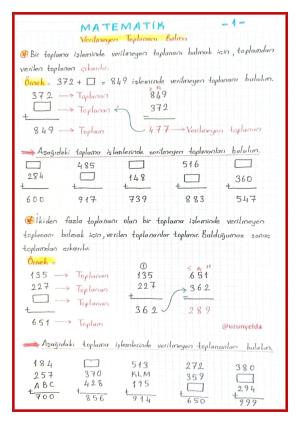 MATEMATİK -1-
Verilmeyen Toplananı Bulma
Bir toplama işleminde verilmeyen toplananı bulmak için, toplamdan
verilen toplanan çıkarılır.
Örnek - 372 + □ = 849 işleminde verilmeyen toplananı bulalım.
372 → Toplanan 849
□ → Toplanan 372
+ -
849 → Toplam 477 → Verilmeyen toplanan
Aşağıdaki toplama işlemlerinde verilmeyen toplananları bulalım.
□ 485 □ 516 □
284 □ 148 □ 360
+ + + + +
600 917 739 883 547
İkiden fazla toplananı olan bir toplama işleminde verilmeyen
toplananı bulmak için, verilen toplananlar toplanır. Bulduğumuz sonuç
toplamdan çıkarılır.
Örnek -
135 → Toplanan 135 651
227 → Toplanan 227 362
□ → Toplanan + -
+ 362 289
651 → Toplam
@uzumyelda
Aşağıdaki toplama işlemlerinde verilmeyen toplananları bulalım.
184 □ 513 272 380
257 370 KLM 359 □
ABC 428 195 □ 294
+ + + + +
700 856 914 650 999